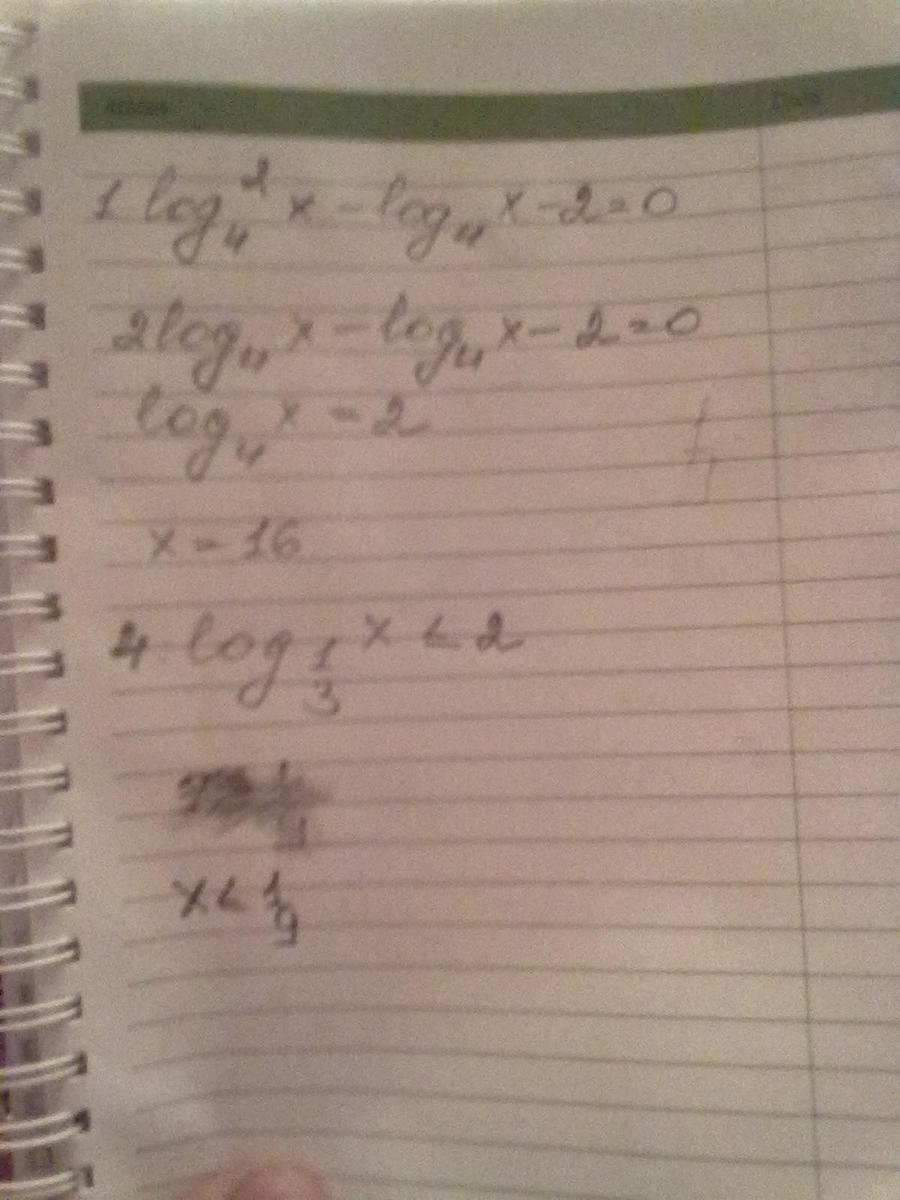 1 log₄² x - log₄ x - 2 = 0
2log₄ x - log₄ x - 2 = 0
log₄ x = 2
x = 16
4 log_{1/3} x < 2
x < 1/9